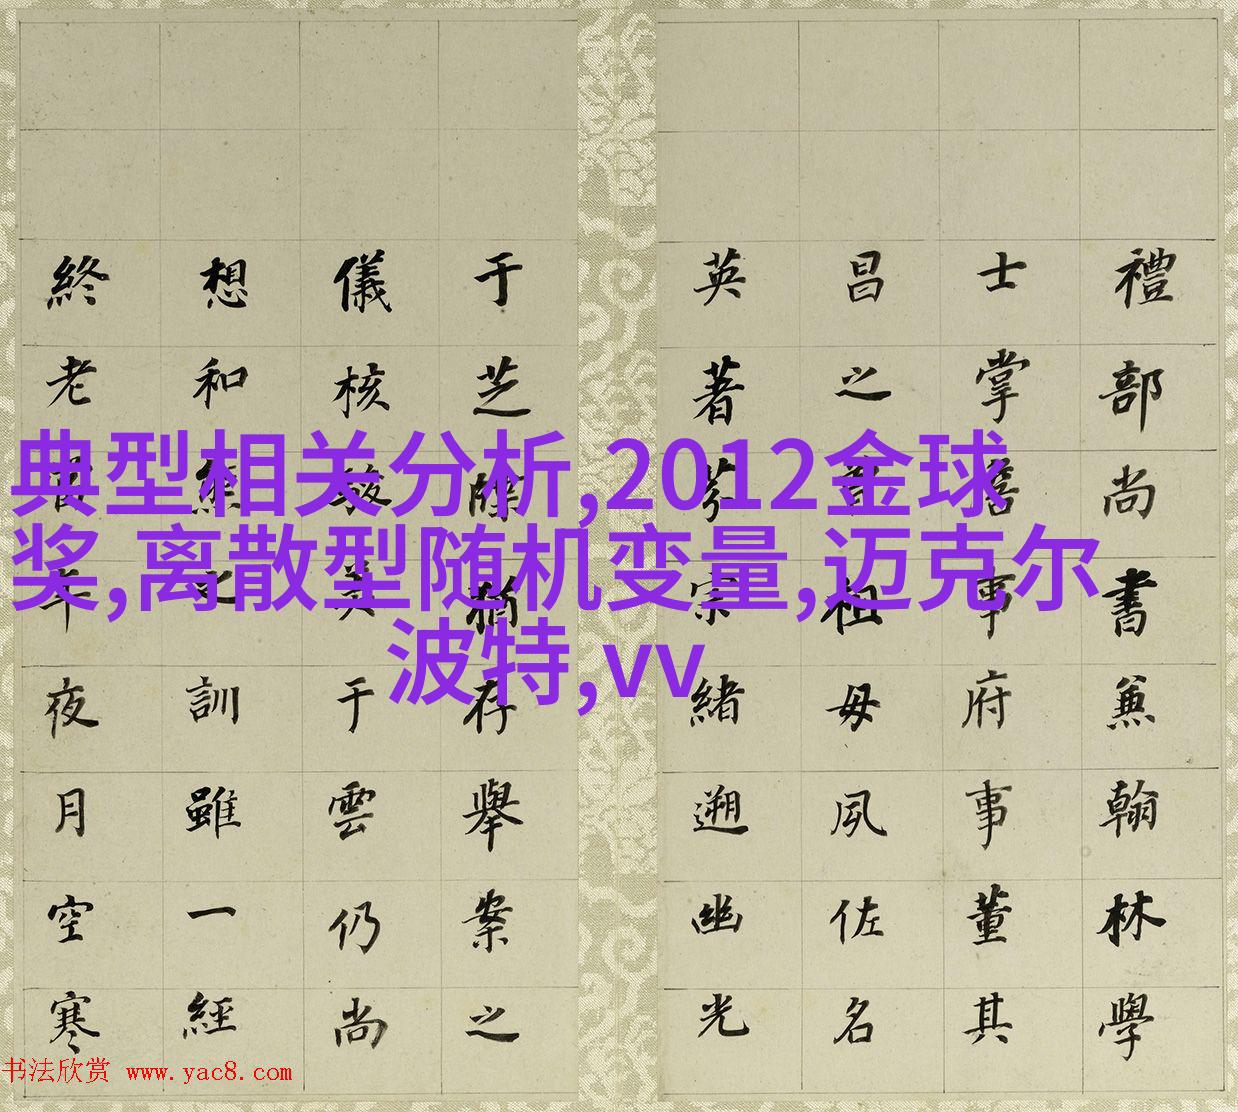 禮部尚書兼翰林學
士掌詹事府事董其
昌之祖母夙佐名
英著宗緒遡幽光
于芝牒猶存舉案之
儀核于雲仍尚
想和熊之訓雖一經
終老午夜月空寒
典型相关分析,2012金球
奖,离散型随机变量,迈克尔
波特,vv
书法欣赏 www.yac8.com